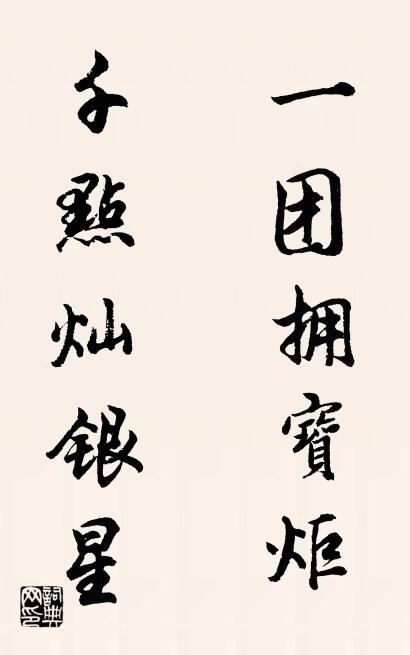 一团拥寶炬
千點灿银星
詞典网印